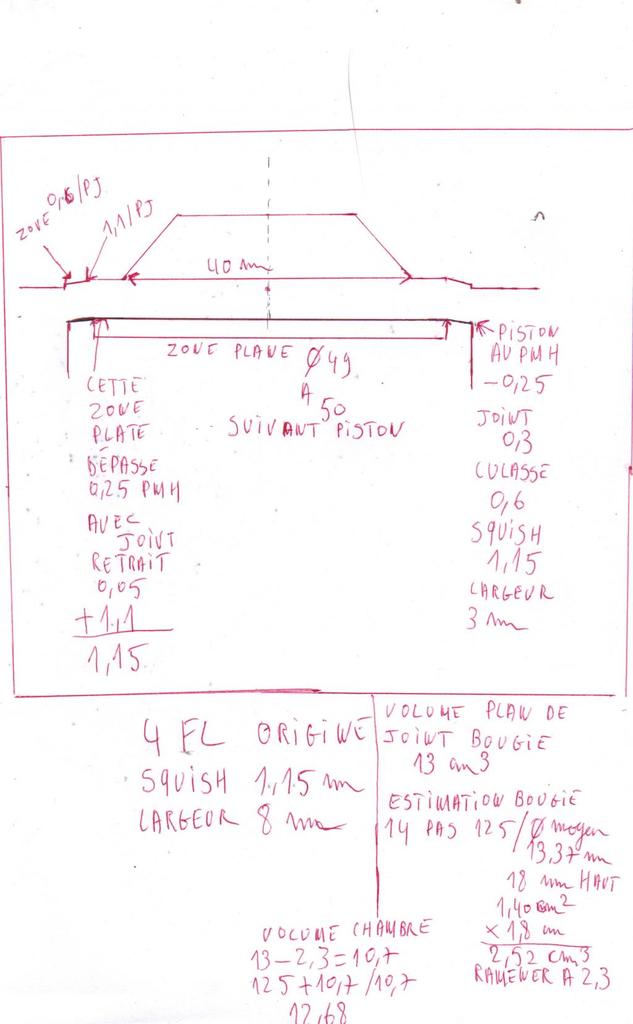 ZONE 0,6/PJ
1,1/PJ
40 mm
ZONE PLANE Ø 49
A
50
SUIVANT PISTON
CETTE
ZONE
PLATE
DÉPASSE
0,25 PMH
AVEC
JOINT
RETRAIT
0,05
+1,1
1,15
PISTON
AU PMH
-0,25
JOINT
0,3
CULASSE
0,6
SQUISH
1,15
LARGEUR
3 mm
4 FL ORIGINE
SQUISH 1,15 mm
LARGEUR 8 mm
VOLUME PLAN DE
JOINT BOUGIE
13 cm3
ESTIMATION BOUGIE
14 PAS 125/Ø moyen
13,37 mm
18 mm HAUT
1,40 cm²
x 1,8 cm
2,52 cm3
RAMENER A 2,3
VOLUME CHAMBRE
13-2,3=10,7
125+10,7/10,7
12,68